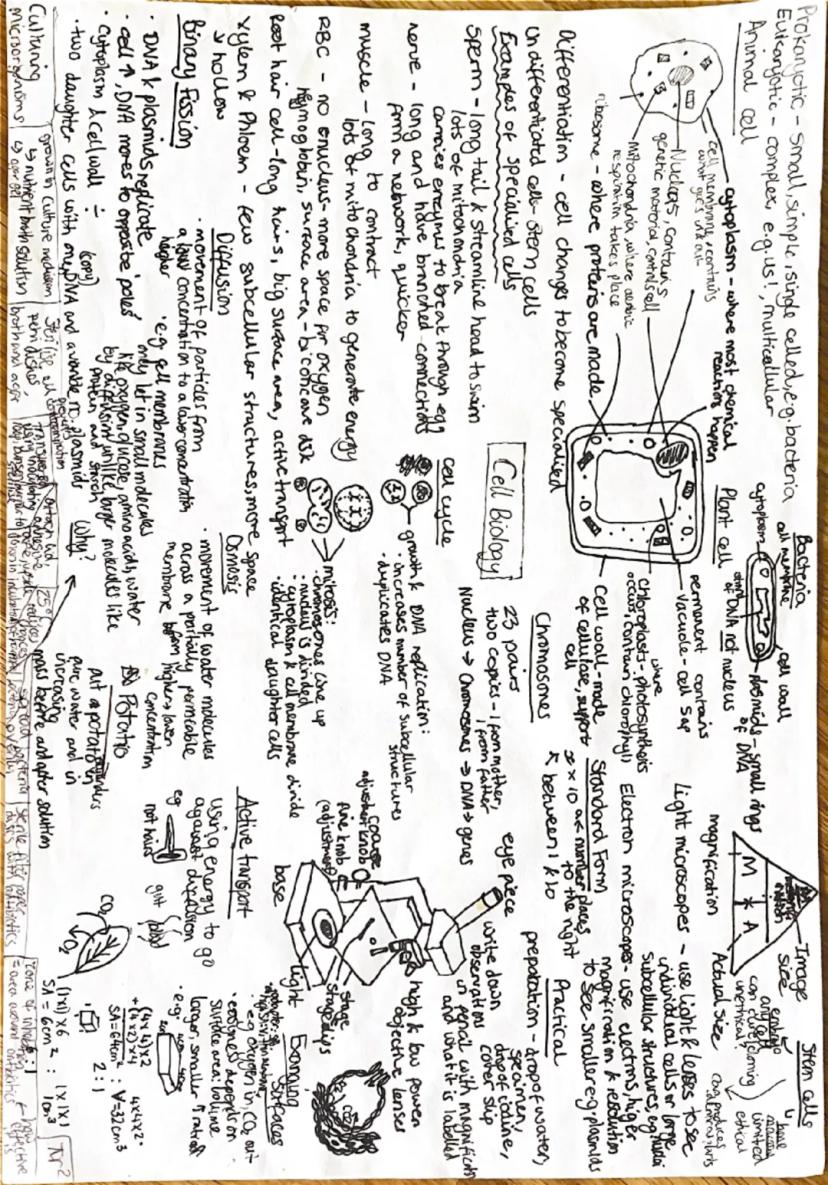 Prokaryotic - small, simple, single celled, e.g. bacteria
Eukaryotic - complex, e.g. us!, multicellular
Animal cell
cytoplasm - where most chemical
reactions happen
cell membrane, controls
what goes in & out
Nucleus, contains
genetic material, controls cell
Mitochondria, where aerobic
respiration takes place
ribosome - where proteins are made
Bacteria
cell membrane
cytoplasm
cell wall
plasmids - small rings
of DNA
strand
of DNA not nucleus
Plant cell
permanent contains
vacuole - cell sap
where
chloroplasts - photosynthesis
occurs, contain chlorophyll
Cell wall - made
of cellulose, supports
cell
Image
size
M * A
magnification
Actual size
Stem cells
embryo
can cure
unethical?
bone
limited
ethical
Light microscopes - use light & lenses to see
individual cells or large
subcellular structures, e.g. nuclei
Electron microscopes - use electrons, higher
magnification & resolution
to see smaller e.g. plasmids
Standard Form
x 10 are number places
to the right
between 1 & 10
Practical
preparation - drop of water,
specimen,
drop of iodine,
cover slip
write down
observations
in pencil with magnification
and what it is labelled
Differentiation - cell changes to become specialised
Undifferentiated cells - stem cells
Examples of specialised cells
sperm - long tail & streamline head to swim
lots of mitochondria
carries enzymes to break through egg
nerve - long and have branched connections
form a network, quicker
muscle - long to contract
lots of mitochondria to generate energy
RBC - no nucleus - more space for oxygen
haemoglobin, surface area - biconcave disk
Root hair cell - long hairs, big surface area, active transport
xylem & Phloem - few subcellular structures, more space
hollow
Cell Biology
Chromosones
23 pairs
two copies - 1 from mother,
1 from father
Nucleus → Chromosones → DNA → genes
Cell cycle
growth & DNA replication:
• increases number of subcellular
structures
• duplicates DNA
mitosis:
• chromosones line up
• nucleus is divided
• cytoplasm & cell membrane divide
• identical daughter cells
eye piece
high & low power
objective lenses
coarse
adjustment knob
fine knob
(adjustment)
stage
stage clips
light
base
Binary Fission
• DNA & plasmids replicate
• cell ↑, DNA moves to opposite 'poles'
• Cytoplasm & Cell wall ÷
(copy)
• two daughter cells with DNA and a variable no. plasmids
Diffusion
• movement of particles from
a higher concentration to a lower concentration
• e.g. cell membranes
may let in small molecules
like oxygen, glucose, amino acids, water
by diffusion unlike larger molecules like
protein and starch
Osmosis
• movement of water molecules
across a partially permeable
membrane from higher → lower
concentration
Potato
put a potato in
pure water and in
increasing
mass before and after solution
Why?
Active transport
using energy to go
against diffusion
eg
root hairs
gut
blood
Exchanging
Surfaces
• e.g. oxygen in, CO₂ out
• depend on
surface area: volume
larger, smaller ratio
• e.g.
CO₂
O₂
(1x1)x6
SA = 6cm² : 1x1x1
1cm³
(4x4)x2
+(4x2)x4
SA = 64cm² : 4x4x2
V = 32cm³
2:1
Culturing
microorganisms
grown in culture medium
→ nutrient broth solution
→ agar gel
25°C
zone of inhibition
= area around antibiotics
how
effective
πr²